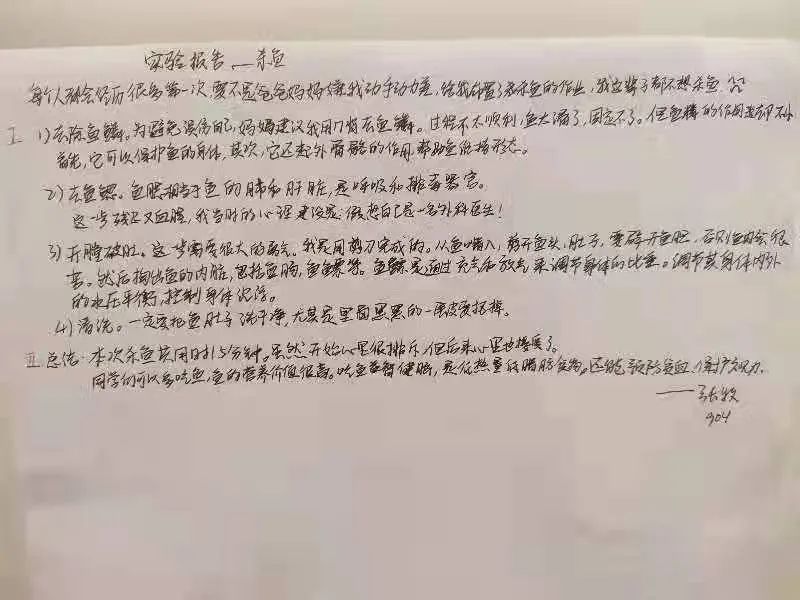 实验报告——杀鱼
每个人都会经历很多第一次,要不是爸爸妈妈嫌我动手动力差,给我布置了杀鱼的作业,我这辈子都不想杀鱼
I. 1) 去除鱼鳞。为避免误伤自己,妈妈建议我用刀背去鱼鳞。过程不太顺利,鱼太滑了,固定不了。但鱼鳞的作用却不小
首先,它可以保护鱼的身体,其次,它还起外骨骼的作用,帮助鱼维持形态。
2) 去鱼鳃。鱼鳃相当于鱼的肺和肝脏,是呼吸和排毒器官。
这一步残忍又血腥,我当时的心理建设是:假想自己是一名外科医生!
3) 开膛破肚。这步需要很大的勇气。我是用剪刀完成的。从鱼嘴入,剪开鱼头、肚子,要避开鱼胆,否则鱼肉会很
苦。然后掏出鱼的内脏,包括鱼肠,鱼鳔等。鱼鳔是通过充气和放气来调节身体的比重。调节其身体内外
的水压平衡,控制身体沉浮。
4) 清洗。一定要把鱼肚子洗干净,尤其是里面黑黑的一层皮要搓掉。
II. 总结:本次杀鱼共用时15分钟。虽然开始心里很排斥,但后来心里也接受了。
同学们可以多吃鱼,鱼的营养价值很高。吃鱼益智健脑,是低热量低脂肪食物。还能预防贫血,保护视力.
——张牧
904